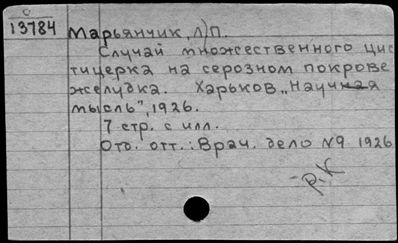 С
13784
Марьянчик, Л)П.
Случай множественного цис
тицерка на серозном покрове
желудка. Харьков „Научная
мысль", 1926.
7 стр. с илл.
Отд. отт.: Врач. дело №9 1926
р.К